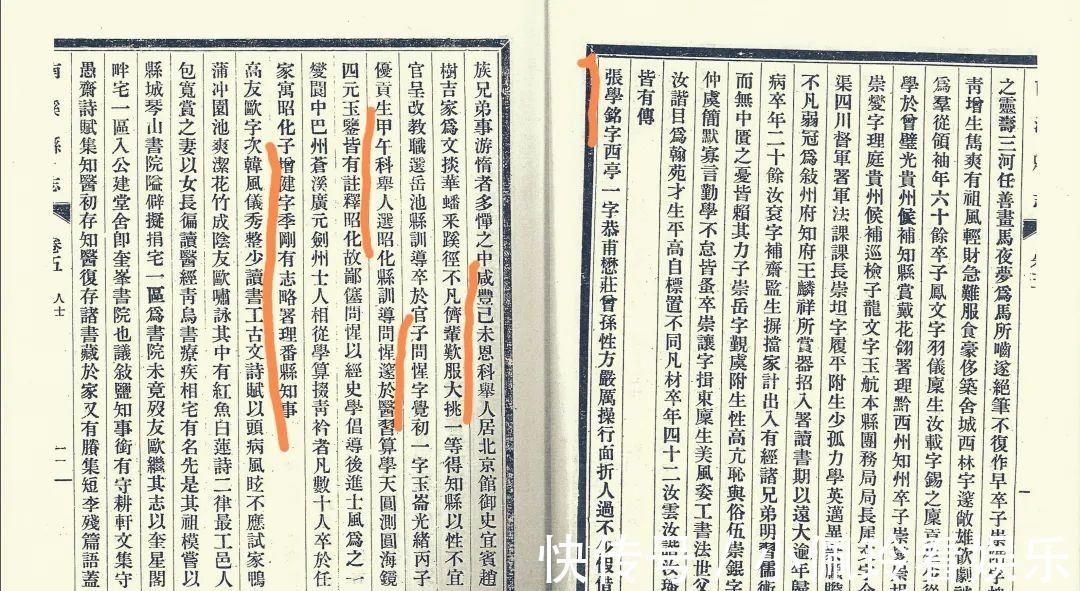 之靈壽三河任善畫馬夜夢爲馬所嚙遂絕筆不復作早卒子崇
青增生雋爽有祖風輕財急難服食豪侈築舍城西林宇邃敞雄飲劇
爲羣從領袖年六十餘卒子鳳文字羽儀廩生汝載字錫之廩貢
學於曾璧光貴州候補知縣賞戴花翎署理黔西州知州卒子崇
崇燮字理庭貴州候補巡檢子龍文字玉航本縣團務局局長崖
渠四川督軍署軍法課課長崇坦字履平附生少孤力學英邁異
不凡弱冠爲敘州府知府王麟祥所賞器招入署讀書期以遠大逾年歸
病卒年二十餘汝袞字補齋監生摒擋家計出入有經諸兄弟明習儒術
而無中匱之憂皆賴其力子崇岳字覲虞附生性高亢恥與俗伍崇錕字
仲虞簡默寡言勤學不怠皆蚤卒崇讓字揖東廩生美風姿工書法世父
汝諧目爲翰苑才生平高自標置不同凡材卒年四十二汝雲汝諧汝
皆有傳
張學銘字西亭一字恭甫懋莊曾孫性方嚴厲操行面折人過不少假借
族兄弟事游惰者多憚之中咸豐己未恩科舉人居北京館御史宜賓趙
樹吉家爲文掞華蟠釆蹊徑不凡儕輩歎服大挑一等得知縣以性不宜
官呈改教職選岳池縣訓導卒於官子問惺字覺初一字玉崙光緒丙子
優貢生甲午科舉人選昭化縣訓導問惺邃於醫習算學天圓測圓海鏡
四元玉鑒皆有註釋昭化故鄙僿問惺以經史學倡導後進士風爲之一
變閬中巴州蒼溪廣元劍州士人相從學算掇青衿者凡數十人卒於任
家寓昭化子增健字季剛有志略署理番縣知事
高友歐字次韓風儀秀整少讀書工古文詩賦以頭病風眩不應試家鴨
蒲冲園池爽潔花竹成陰友歐嘯詠其中有紅魚白蓮詩二律最工邑人
包寬賞之妻以女長徧讀醫經青烏書療疾相宅有名先是其祖模嘗以
縣城琴山書院隘僻擬捐宅一區爲書院未竟歿友歐繼其志以奎星閣
畔宅一區入公建堂舍卽奎峯書院也議敘鹽知事銜有守耕軒文集守
愚齋詩賦集知醫初存知醫復存諸書藏於家又有賸集短李殘篇語蓋
南溪縣志
卷五
人士
快传号